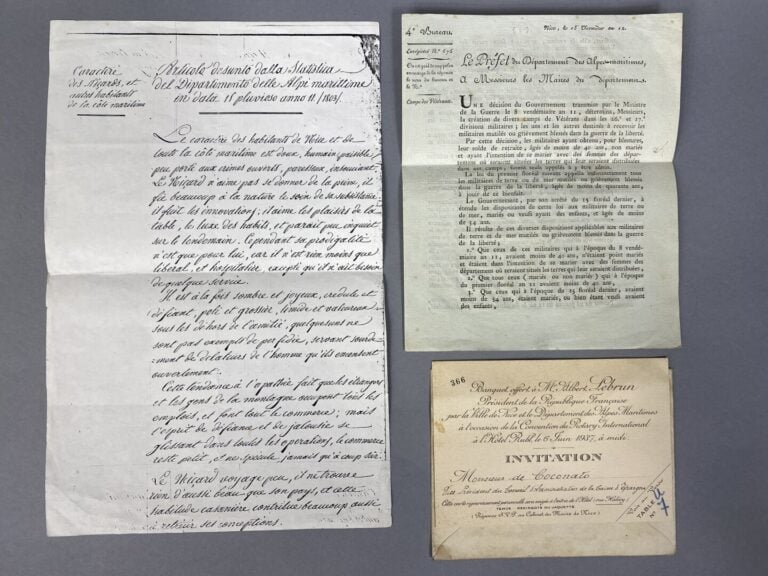 Caractère
des Niçards, et
autres habitants
de la côte maritime
Articolo desunto dalla Statistica
del Dipartimento delle Alpi marittime
in data 1º piovoso anno 11 (1803)
Le caractère des habitants de Nice et de
toute la côte maritime est doux, humain, paisible,
peu porté aux crimes ouverts, paresseux, insouciant.
Le Niçard n'aime pas se donner de la peine, il
fie beaucoup à la nature le soin de sa subsistance
et fuit les innovations; il aime les plaisirs de la
table, le luxe des habits, et parait peu inquiet
sur le lendemain. Cependant sa prodigalité
n'est que pour lui, car il n'est rien moins que
libéral, et hospitalier, excepté qu'il n'ait besoin
de quelque service.
Il est à la fois sombre et joyeux, credule et
défiant, poli et grossier, timide et valeureux
sous les dehors de l'amitié, quelques uns ne
sont pas exempts de perfidie, servant sourde-
ment de delateurs de l'homme qu'ils encensent
ouvertement.
Cette tendance à l'apathie fait que les étrangers
et les gens de la montagne occupent tous les
emplois, et font tout le commerce; mais
l'esprit de défiance et de jalousie se
glissant dans toutes les opérations, le commerce
reste petit, et ne spécule jamais qu'à coup sûr.
Le Niçard voyage peu, il ne trouve
rien d'aussi beau que son pays, et cette
habitude casanière contribue beaucoup aussi
à retrécir ses conceptions.
4e Bureau.
Nice, le 15 an 12.
Enregistré N.º 676
Camps des Vétérans.
Le Préfet du Département des Alpes-maritimes,
A Messieurs les Maires du département.
UNE décision du Gouvernement transmise par le Ministre
de la Guerre le 8 vendémiaire an 11, détermina, Messieurs,
la création de divers camps de Vétérans dans les 26.e et 27.e
divisions militaires; les uns et les autres destinés à recevoir les
militaires mutilés ou grièvement blessés dans la guerre de la liberté.
Par cette décision, les militaires ayant obtenu, pour blessures,
leur solde de retraite, âgés de moins de 40 ans, non mariés
et ayant l'intention de se marier avec des femmes des dépar-
temens où seraient situées les terres qui leur seraient distribuées
dans ces camps, furent seuls appelés à y être admis.
La loi du premier floréal suivant appella indistinctement tous
les militaires de terre ou de mer mutilés ou grièvement blessés
dans la guerre de la liberté, âgés de moins de quarante ans,
à jouir de ce bienfait.
Le Gouvernement, par son arrêté du 15 floréal dernier, a
étendu les dispositions de cette loi aux militaires de terre ou
de mer, mariés ou veufs ayant des enfans, et âgés de moins
de 54 ans.
Il résulte de ces diverses dispositions applicables aux militaires
de terre et de mer mutilés ou grièvement blessés dans la guerre
de la liberté;
1.º Que ceux de ces militaires qui à l'époque du 8 vendé-
miaire an 11, avaient moins de 40 ans, n'étaient point mariés
et étaient dans l'intention de se marier avec des femmes du
département où seraient situés les terres qui leur seraient distribuées,
2.º Que tous ceux ( mariés ou non mariés ) qui à l'époque
du premier floréal an 11 avaient moins de 40 ans,
3.º Que ceux qui à l'époque du 15 floréal dernier, avaient
moins de 54 ans, étaient mariés, ou bien étant veufs avaient
des enfans,
366
Banquet offert à M. Albert Lebrun
Président de la République Française
par la Ville de Nice et le Département des Alpes-Maritimes
à l'occasion de la Convention du Rotary International
à l'Hôtel Ruhl le 6 Juin 1937, à midi.
INVITATION
Monsieur de Coconato
Président du Conseil d'Administration de la Caisse d'Epargne
TENUE : REDINGOTE OU JAQUETTE
( Réponse S.V.P. au Cabinet du Maire de Nice )
TABLE
Nº 7